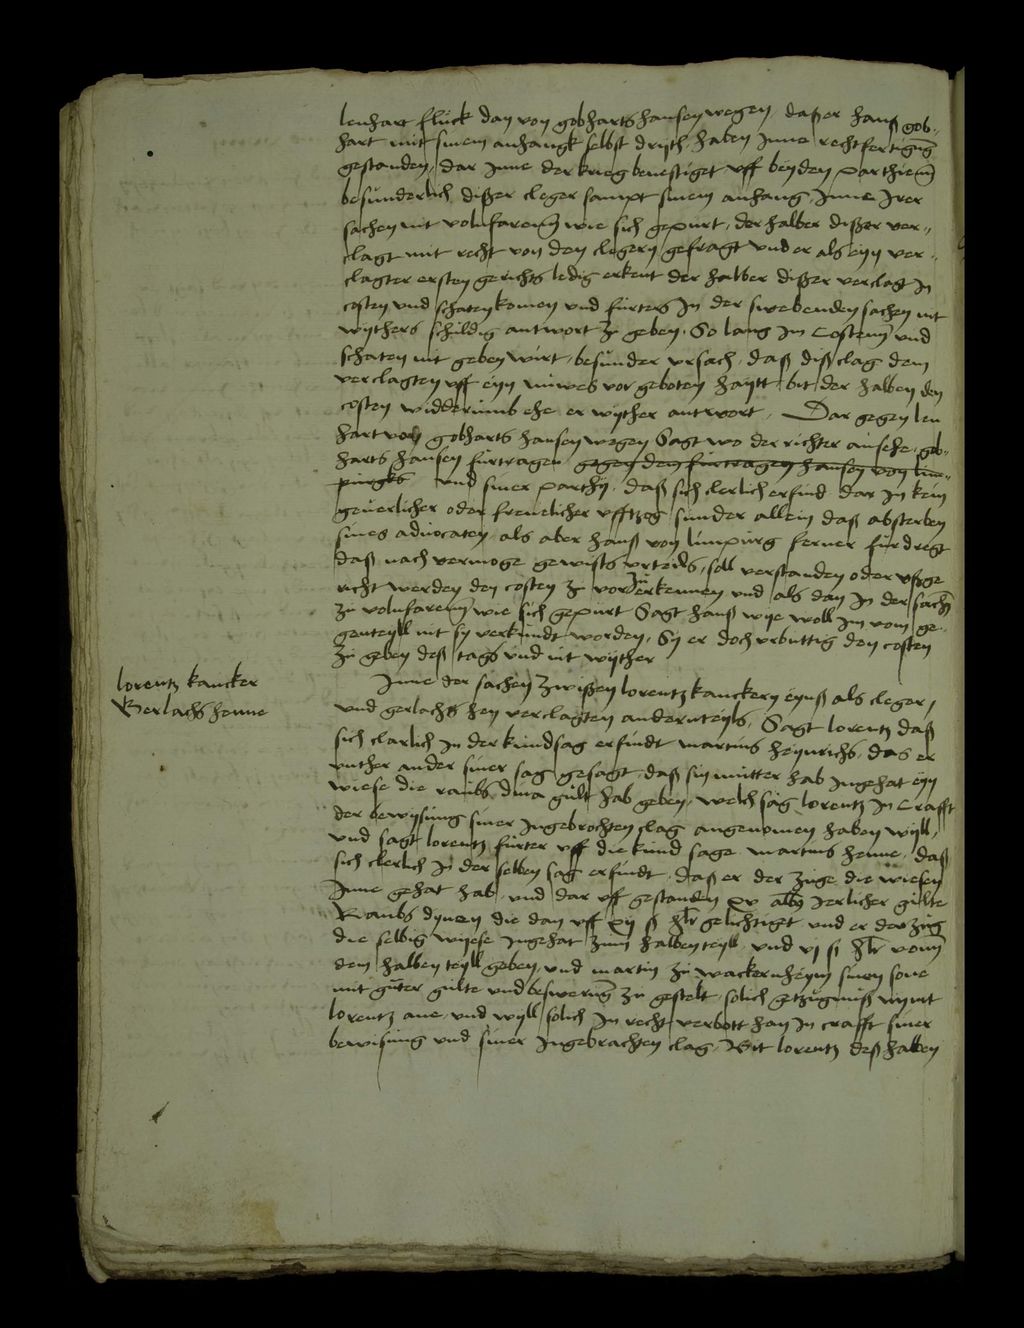 lenhart flück dan von gobharts hansen wegen, daß er hanß gob-
hart mit sinem anhangk selbst dryth haben Inne rechtfertigung
gestanden, dar Inne der krieg beuestiget vff beyden parthienn
besunderlich dißer cleger sampt sinem anhang, Inne Irer
sachen nit volnfarenn wie sich gepurt, der halber dißer ver-
clagt mit recht von den clegern gefragt vnd er als eyn ver-
clagter ersten gerichts ledig erkent der halber dißer verclagt In
costen vnd schaten komen vnd furters In der swebenden sachen nit
wythers schuldig antwort zu geben, So lang Im Costenn vnd
schaten nit geben wirt, besunder vrsach, daß diß clag dem
verclagten vff eyn nuwes vor geboten haytt, bit der halben den
costen widderumb ehe er wyther antwort, Dar gegen len
hart von gobharts hansen wegen Sagt wo der richter ansehe, gob-
harts hansen furtragen gegen dem furtragen hansen von lim-
purgks vnd siner parthy, daß sich clerlich erfind dar In kein
geuerlicher oder freuelicher vfftzog sunder allein daß absterben
sines aduocaten, als aber hanß von limpurg ferner furdregt
daß nach vermoge gewists vrteils, soll verstanden oder vßge
richt werden den costen zu vor Im erkennen vnd als dan In der sachen
zu volnfarenn wie sich gepurt Sagt hanß wye woll Im vom ge-
genteyll nit sy verkundt worden, Sy er doch vrbuttig den costen
zu geben deß tags vnd nit wyther
lorentz kancker
Gerlachs henne
Inne der sachen zwißen lorentz kanckern eynß als cleger,
vnd gerlachs hen verclagten andernteyls, Sagt lorentz daß
sich clarlich In der kundsag erfindt martins heynrichs, das er
vnther ander siner sag gesagt, daß sin mutter hab Ingehat eyn
wiese die raubs dina gult hab geben, welch sag lorentz In Crafft
der bewysung siner Ingebrochten clag angenomen haben wyll,
vnd sagt lorentz furter vff die kund sage martins henne, daß
sich clerlich In der selben sag erfindt, daß er der zuge die wiesen
Inne gehat hab, vnd dar vff gestanden xv alb Jerlicher gulte
Raubs dynen die dan vff xij ß hlr gelichtiget vnd er der zug
die selbig wyese Ingehat zum halbenteyll, vnd vj ß hlr vonn
dem halben teyll geben, vnd martin zu wackernheym sinen sone
mit guter gulte vnd beswerung zu gestelt, solich getzugniß nympt
lorentz ane, vnd wyll solich In recht verbott han In crafft siner
bewisung vnd siner Ingebrachten clag, Bit lorentz deß halben